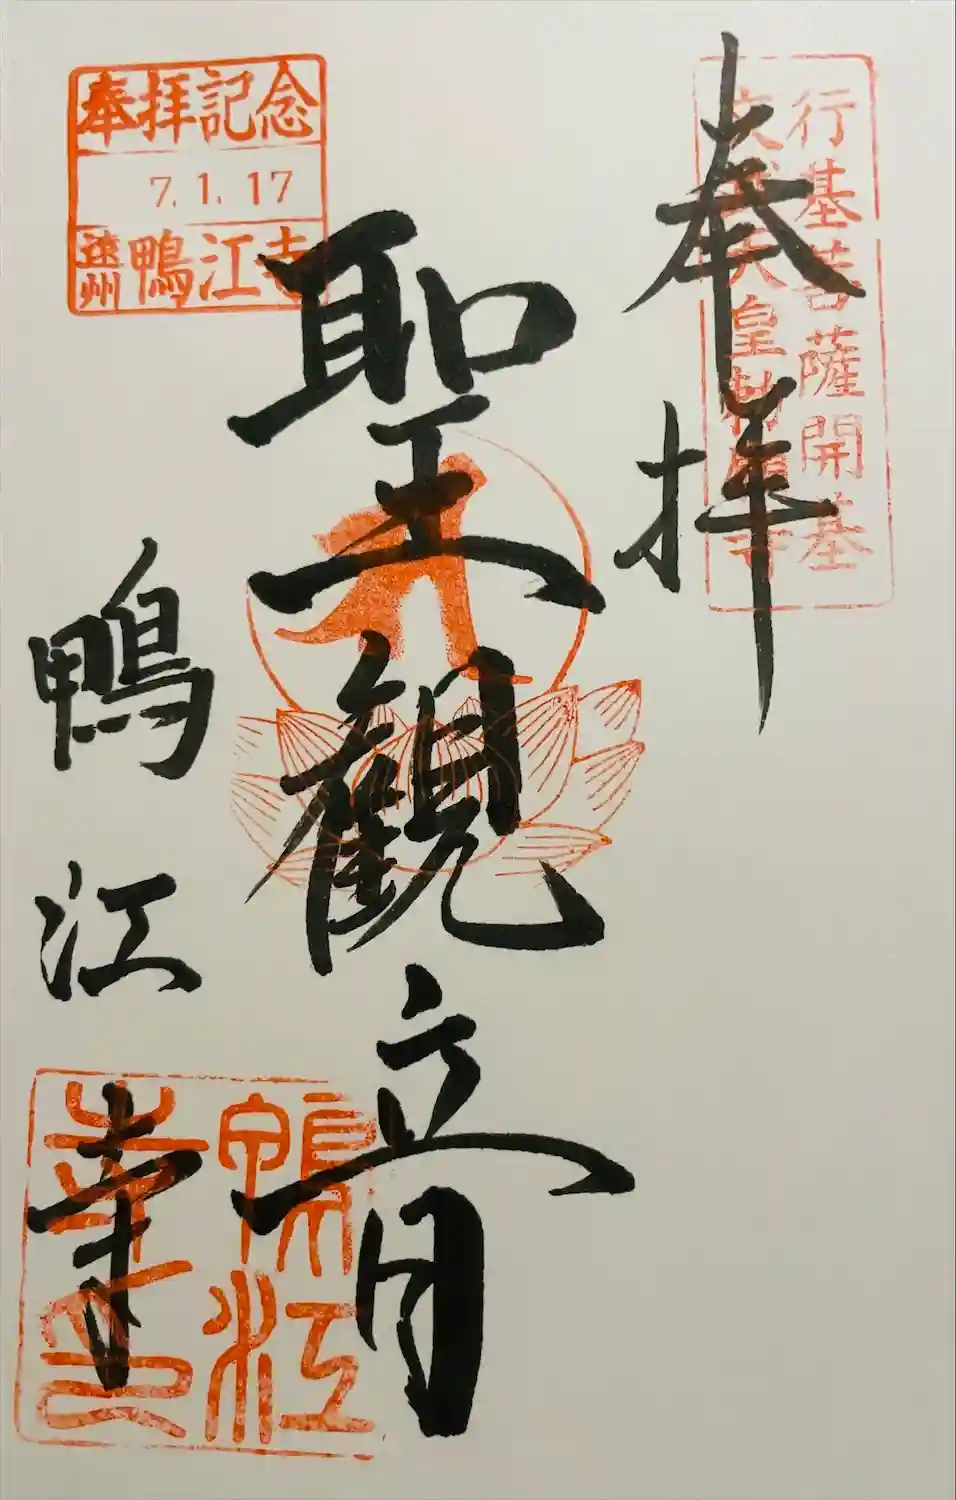 奉拝
行基菩薩開基
文武天皇勅願寺
聖観音
鴨江寺
奉拝記念
7.1.17
遠州 鴨江寺
鴨江寺印